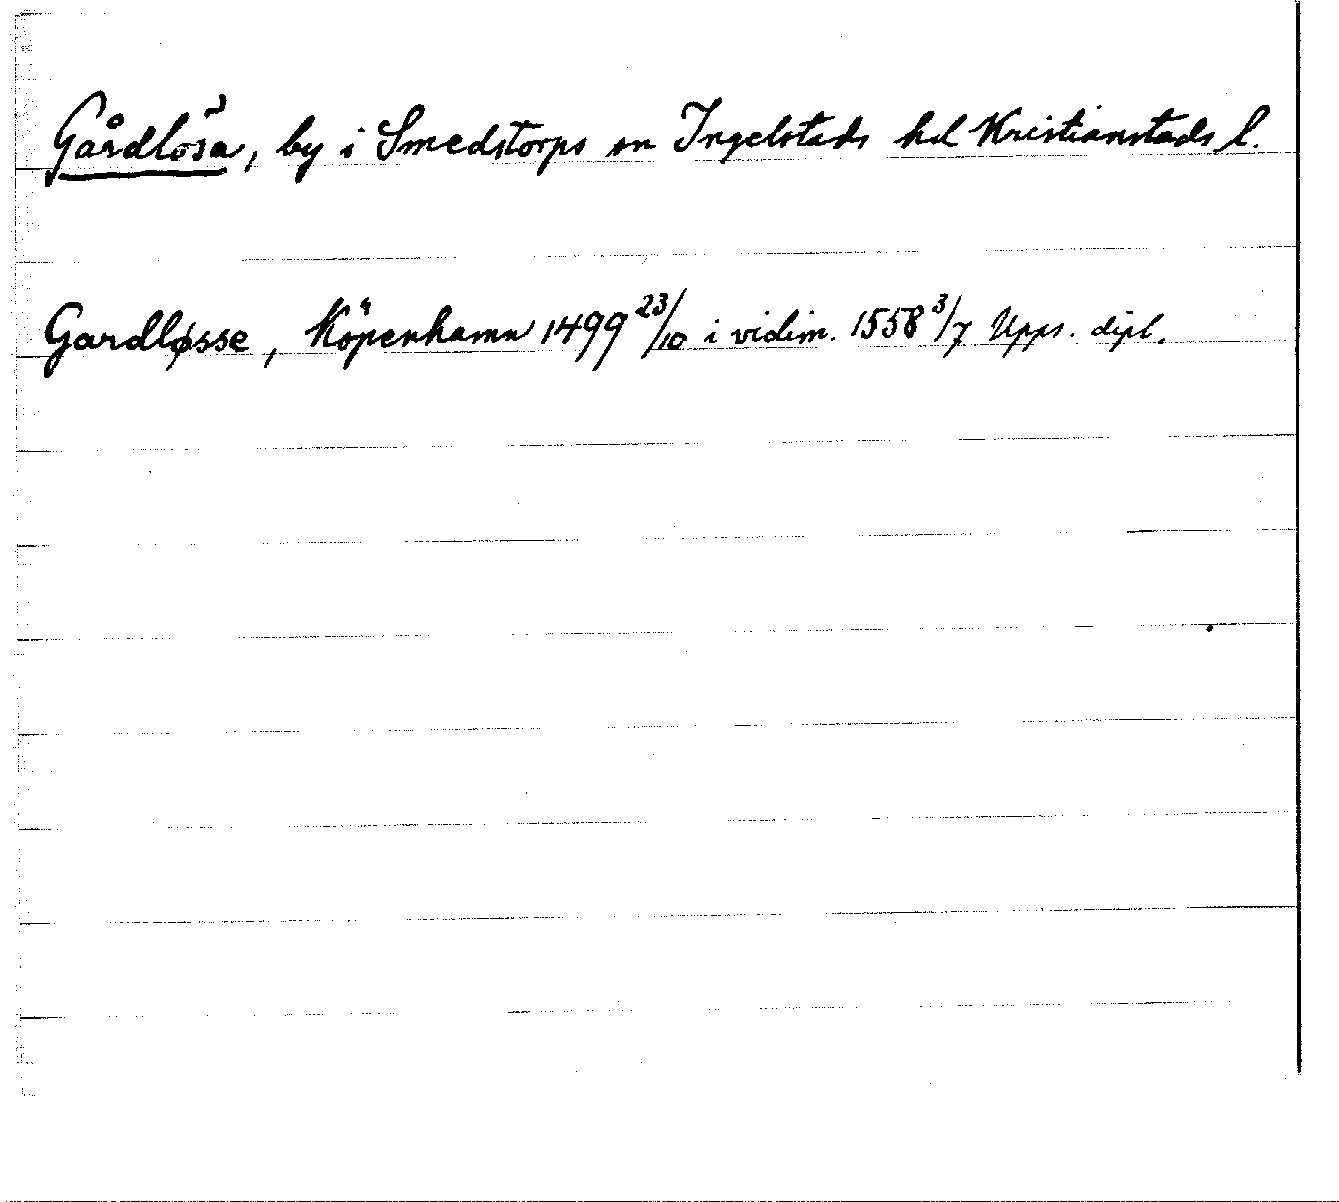 Gårdlösa, by i Smedstorps sn Ingelstads hd Kristianstads l.
Gardløsse, Köpenhamn 1499 23/10 i vidim. 1558 3/7 Upps. dipl.